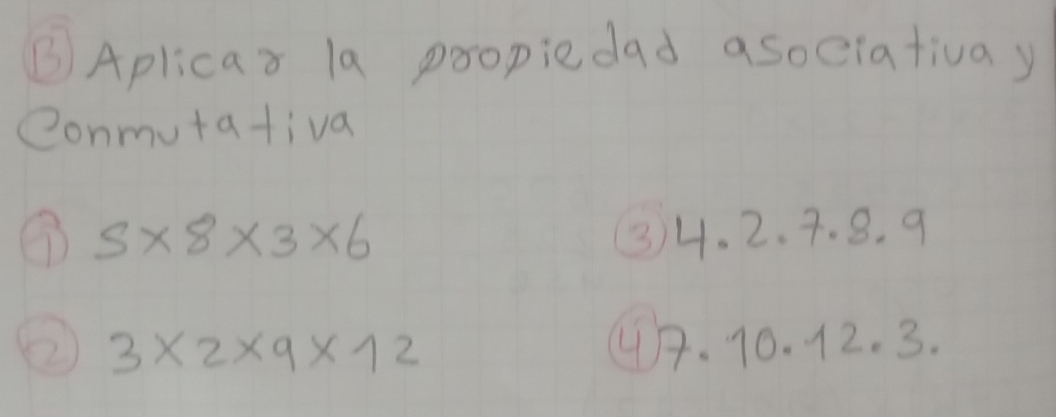 B Aplicar la propiedad asociativa y
Conmutativa
1 5x8x3x6
3 4.2.7.8.9
2 3x2x9x12
4 7.10.12.3.